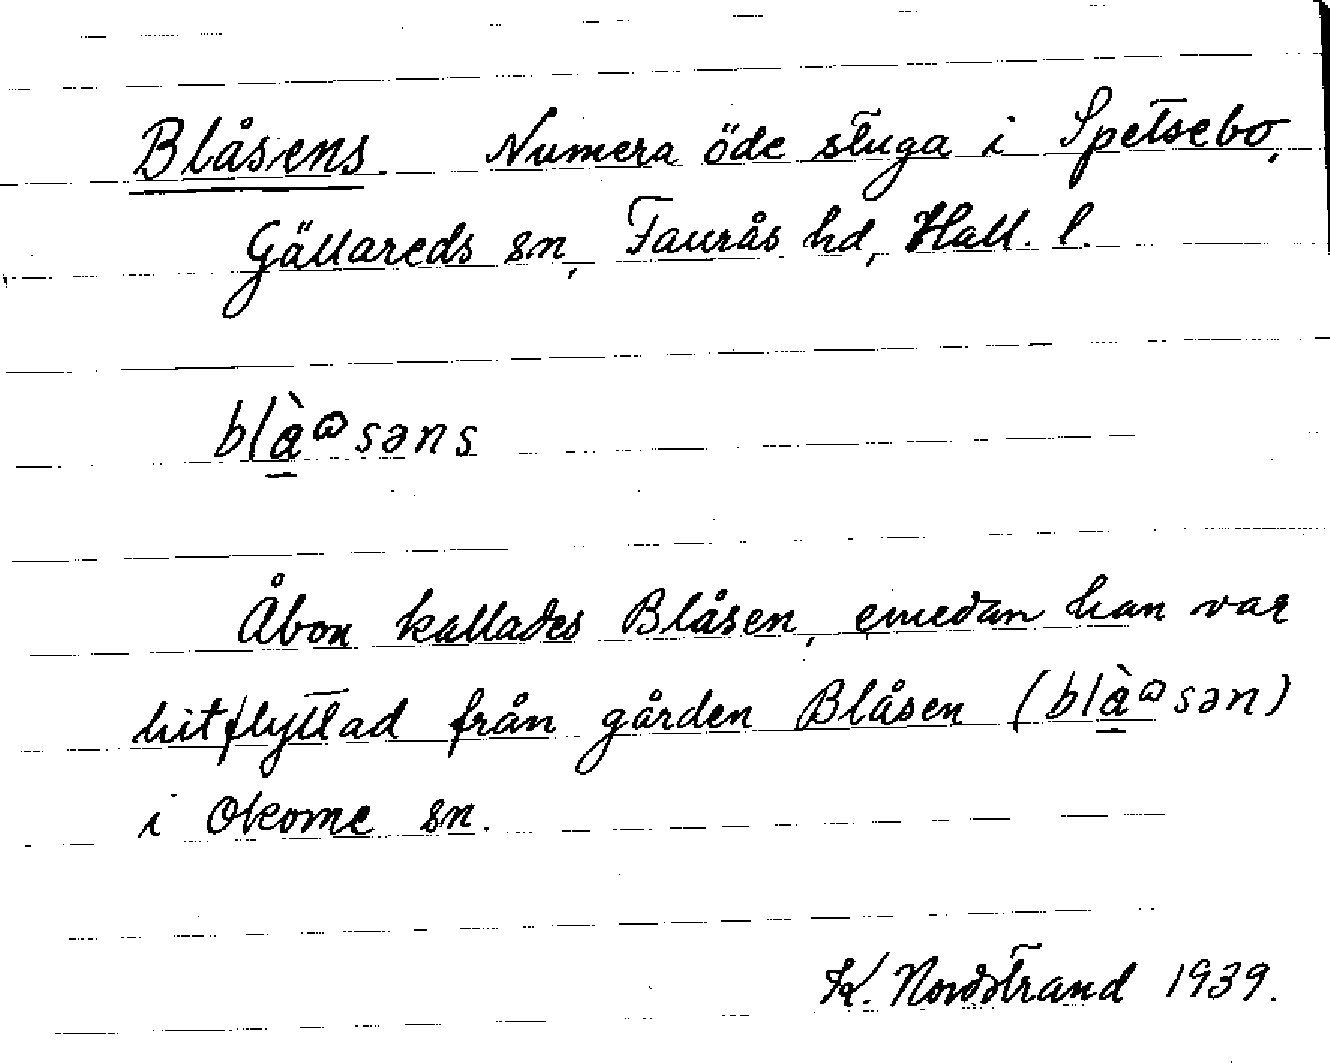 Blåsens. Numera öde stuga i Spetsebo,
Gällareds sn, Faurås hd, Hall. l.
blàωsəns
Åbon kallades Blåsen, emedan han var
hitflyttad från gården Blåsen (blàωsən)
i Okome sn.
K. Nordstrand 1939.